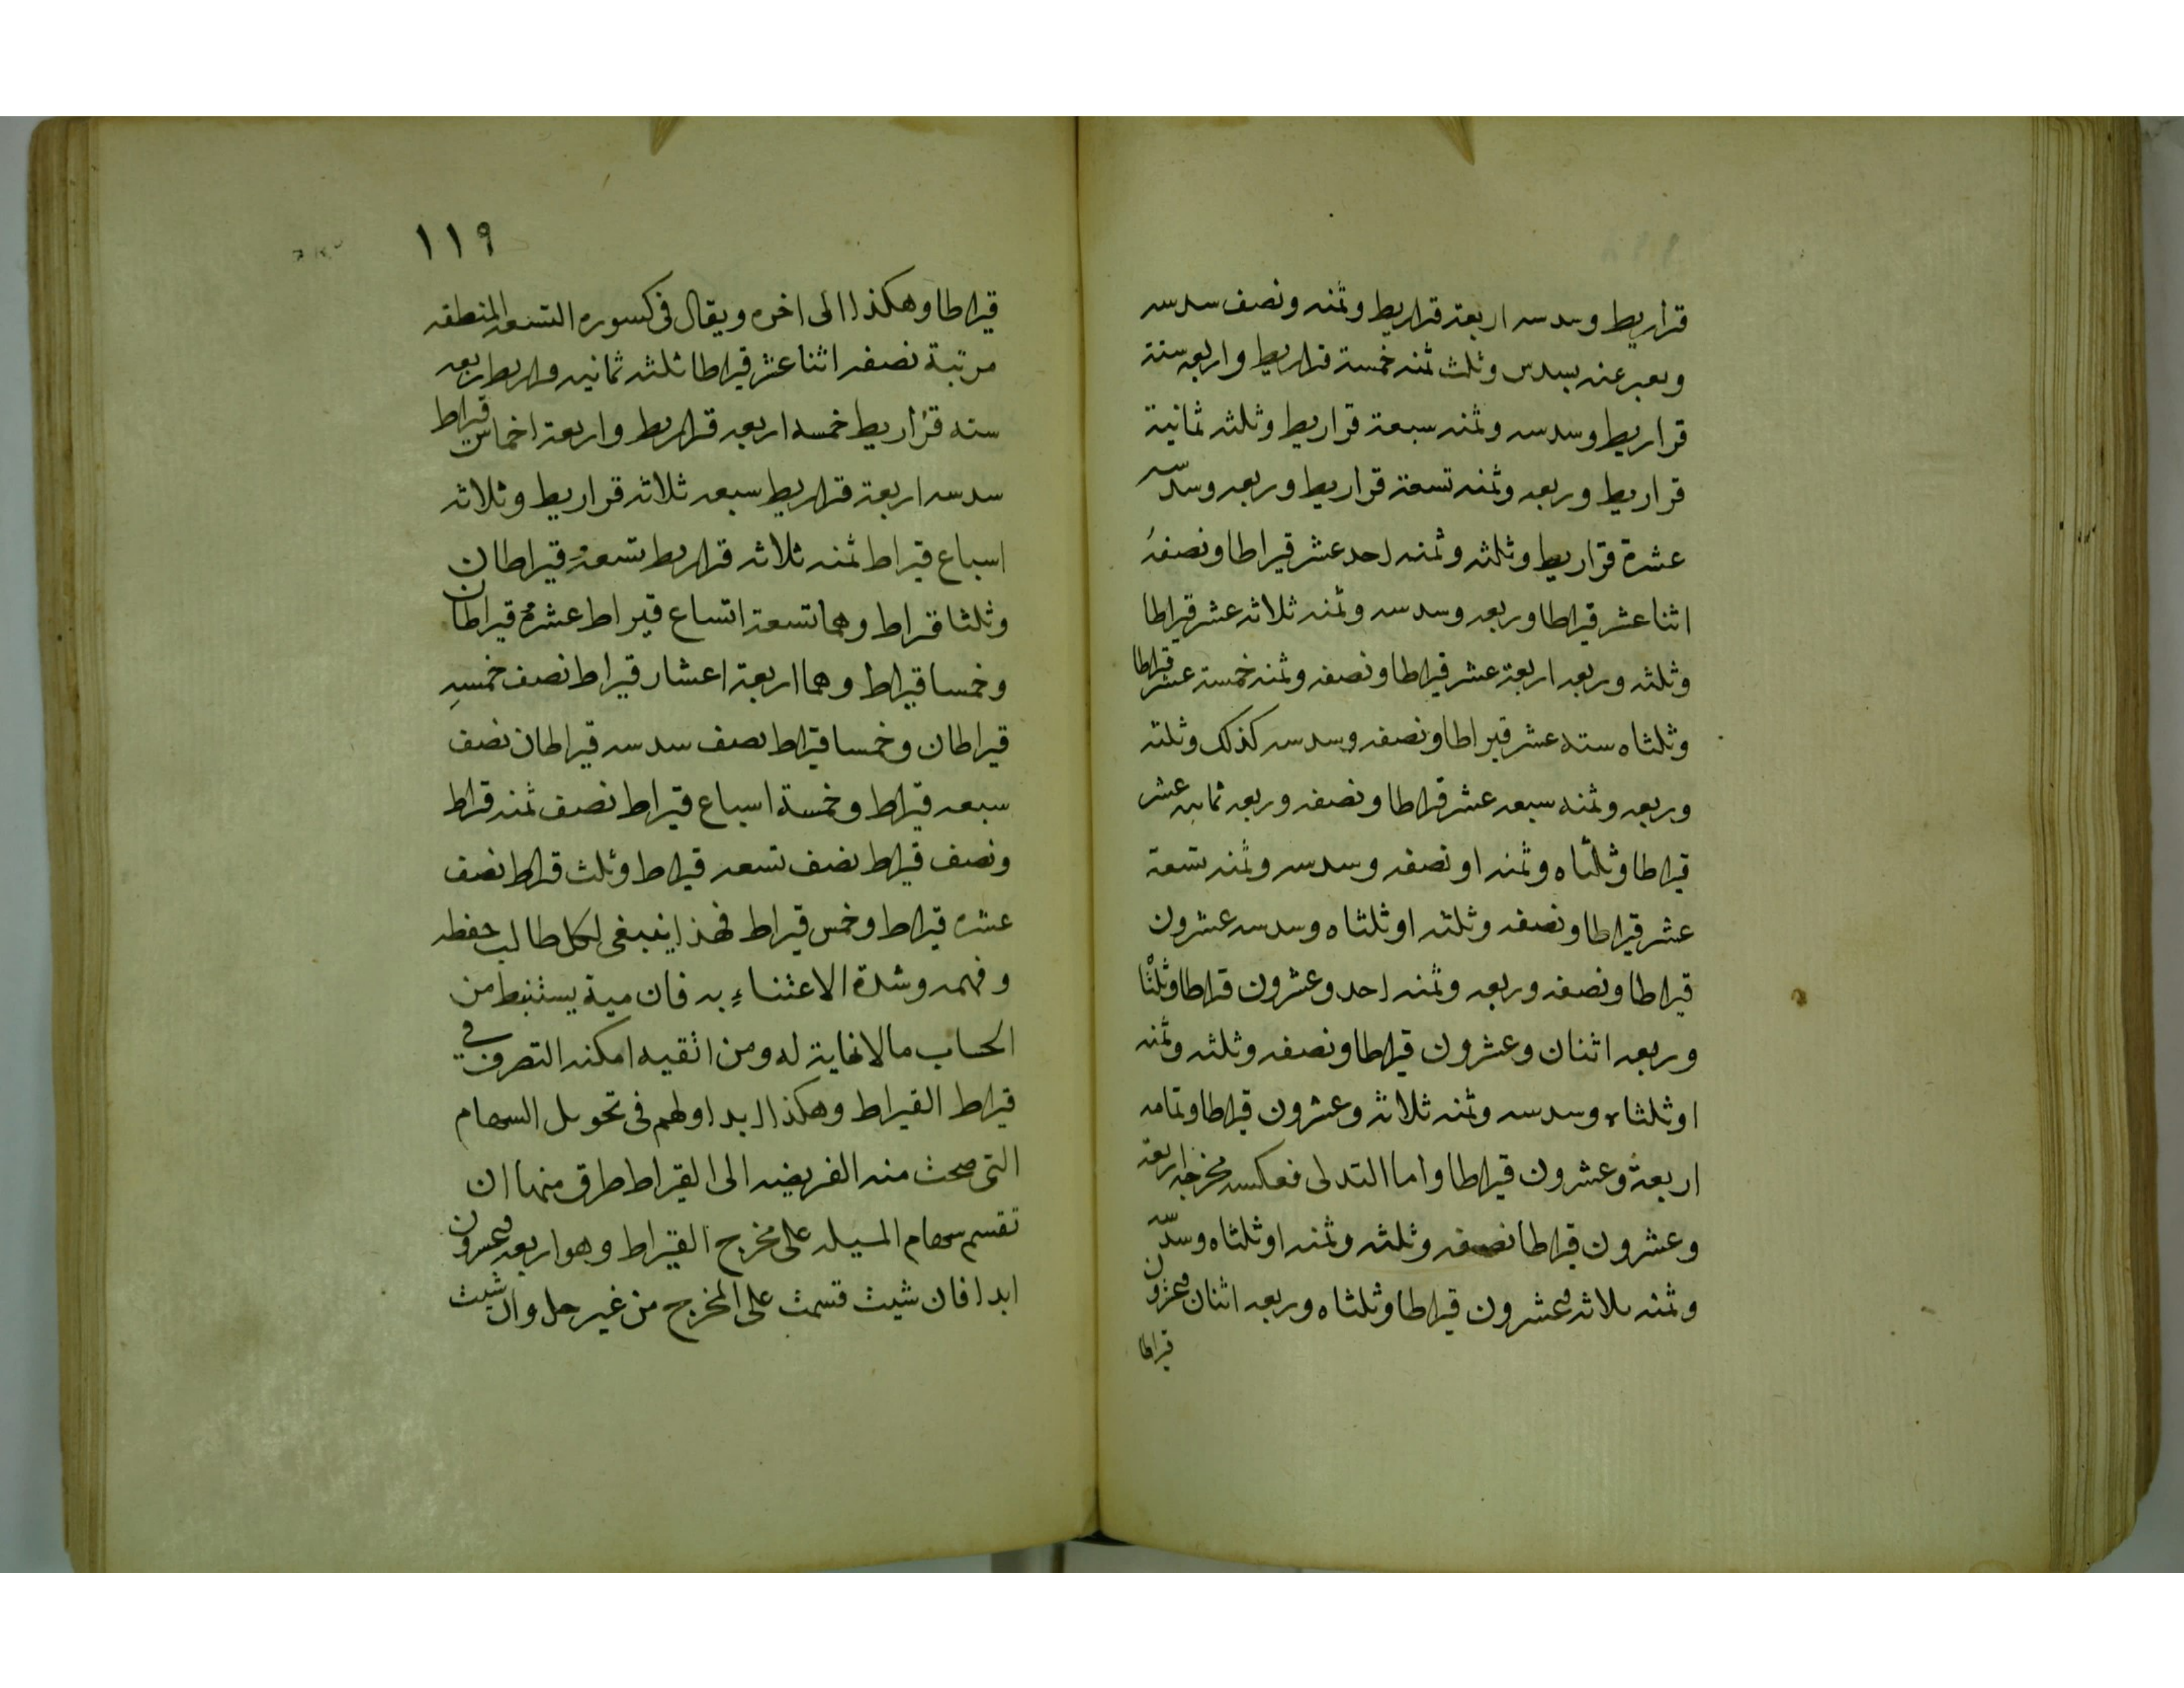 قراريط وسدسه اربعة قراريط وثمنه ونصف سدسه
ويعبر عنه بسدس وثلث ثمنه خمسة قراريط واربعه ستة
قراريط وسدسه وثمنه سبعة قراريط وثلثه ثمانية
قراريط وربعه وثمنه تسعة قراريط وربعه وسدسه
عشرة قراريط وثلثه وثمنه احد عشر قيراطا ونصفه
اثنا عشر قيراطا وربعه وسدسه وثمنه ثلاثه عشر قيراطا
وثلثه وربعه اربعة عشر قيراطا ونصفه وثمنه خمسة عشر قيراطا
وثلثاه سته عشر قيراطا ونصفه وسدسه كذلك وثلثه
وربعه وثمنه سبعه عشر قيراطا ونصفه وربعه ثمانيه عشر
قيراطا وثلثاه وثمنه او نصفه وسدسه وثمنه تسعة
عشر قيراطا ونصفه وثلثه او ثلثاه وسدسه عشرون
قيراطا ونصفه وربعه وثمنه احد وعشرون قيراطا وثلثا
وربعه اثنان وعشرون قيراطا ونصفه وثلثه وثمنه
او ثلثاه وسدسه وثمنه ثلاثه وعشرون قيراطا وتمامه
اربعة وعشرون قيراطا واما التدلى فعكسه مخرجه اربعة
وعشرون قيراطا نصفه وثلثه وثمنه او ثلثاه وسدسه
وثمنه ثلاثه وعشرون قيراطا وثلثاه وربعه اثنان وعشرون
قيراطا
١١٩
قيراطا وهكذا الى اخره ويقال فى كسوره التسعه المنطقه
مرتبة نصفه اثنا عشر قيراطا ثلثه ثمانيه قراريط ربعه
سته قراريط خمسه اربعه قراريط واربعة اخماس قيراط
سدسه اربعة قراريط سبعه ثلاثه قراريط وثلاثه
اسباع قيراط ثمنه ثلاثه قراريط تسعه قيراطان
وثلثا قيراط وهما تسعة اتساع قيراط عشره قيراطان
وخمسا قيراط وهما اربعة اعشار قيراط نصف خمسه
قيراطان وخمسا قيراط نصف سدسه قيراطان نصف
سبعه قيراط وخمسة اسباع قيراط نصف ثمنه قيراط
ونصف قيراط نصف تسعه قيراط وثلث قيراط نصف
عشره قيراط وخمس قيراط فهذا ينبغى لكل طالب حفظه
وفهمه وشدة الاعتناء به فان مية يستنبط من
الحساب ما لا نهاية له ومن اتقيه امكنه التصرف في
قيراط القيراط وهكذا ابدا ولهم فى تحويل السهام
التى صحت منه الفريضه الى القيراط طرق منها ان
تقسم سهام المسيله على مخرج القيراط وهو اربعه وعشرون
ابدا فان شيت قسمت على المخرج من غير حل وان شيت